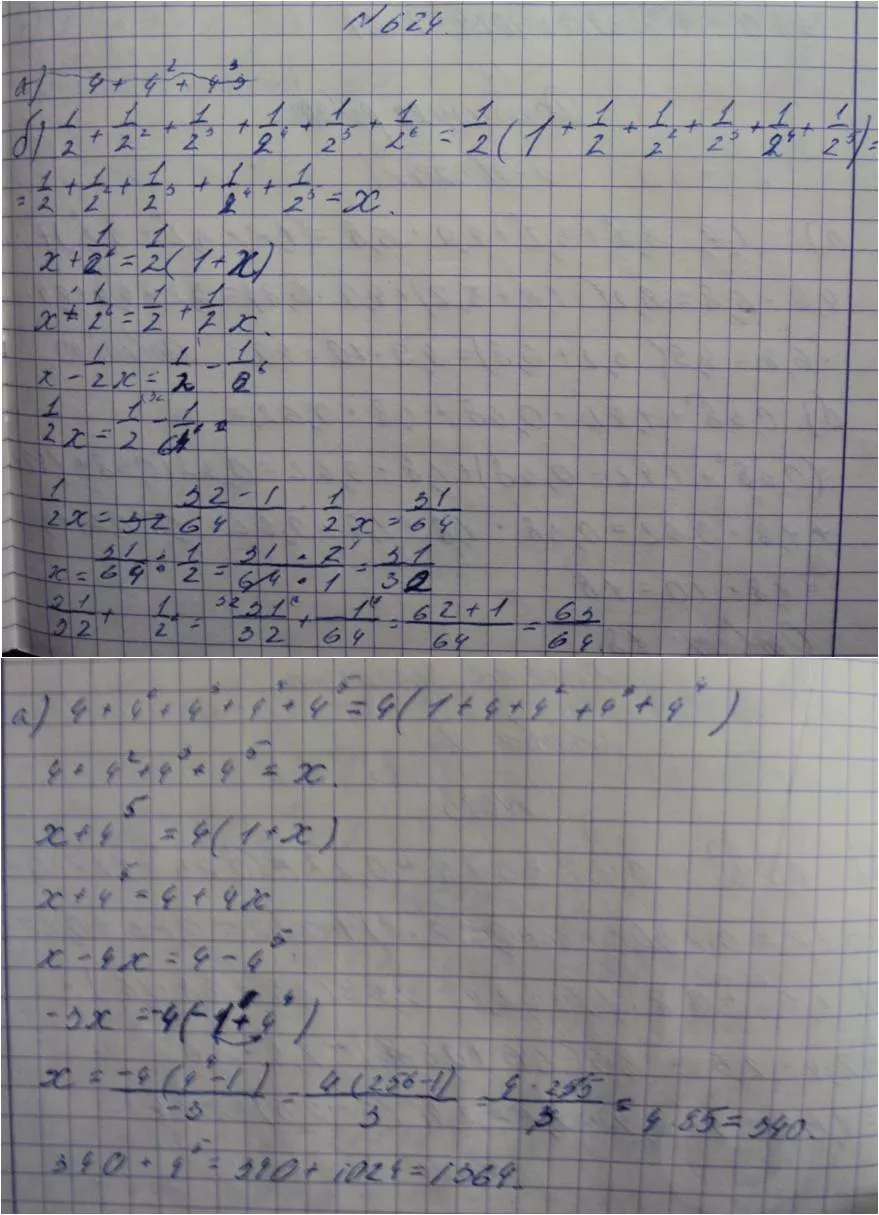 № 624.
а) 4 + 4² + 4³
б) 1/2 + 1/2² + 1/2³ + 1/2⁴ + 1/2⁵ + 1/2⁶ = 1/2 (1 + 1/2 + 1/2² + 1/2³ + 1/2⁴ + 1/2⁵) =
= 1/2 + 1/2² + 1/2³ + 1/2⁴ + 1/2⁵ = x.
x + 1/2⁶ = 1/2 (1 + x)
x + 1/2⁶ = 1/2 + 1/2 x.
x - 1/2 x = 1/2 - 1/2⁶
1/2 x = 1/2 - 1/64
1/2 x = (32 - 1)/64 1/2 x = 31/64
x = 31/64 : 1/2 = (31 · 2)/(64 · 1) = 31/32
31/32 + 1/2⁶ = 31/32 + 1/64 = (62 + 1)/64 = 63/64.
а) 4 + 4² + 4³ + 4⁴ + 4⁵ = 4 (1 + 4 + 4² + 4³ + 4⁴)
4 + 4² + 4³ + 4⁵ = x.
x + 4⁵ = 4 (1 + x)
x + 4⁵ = 4 + 4x
x - 4x = 4 - 4⁵
-3x = -4 (-1 + 4⁴)
x = -4 (4⁴ - 1)/-3 = 4 (256 - 1)/3 = 4 · 255/3 = 4 · 85 = 340.
340 + 4⁵ = 340 + 1024 = 1364.